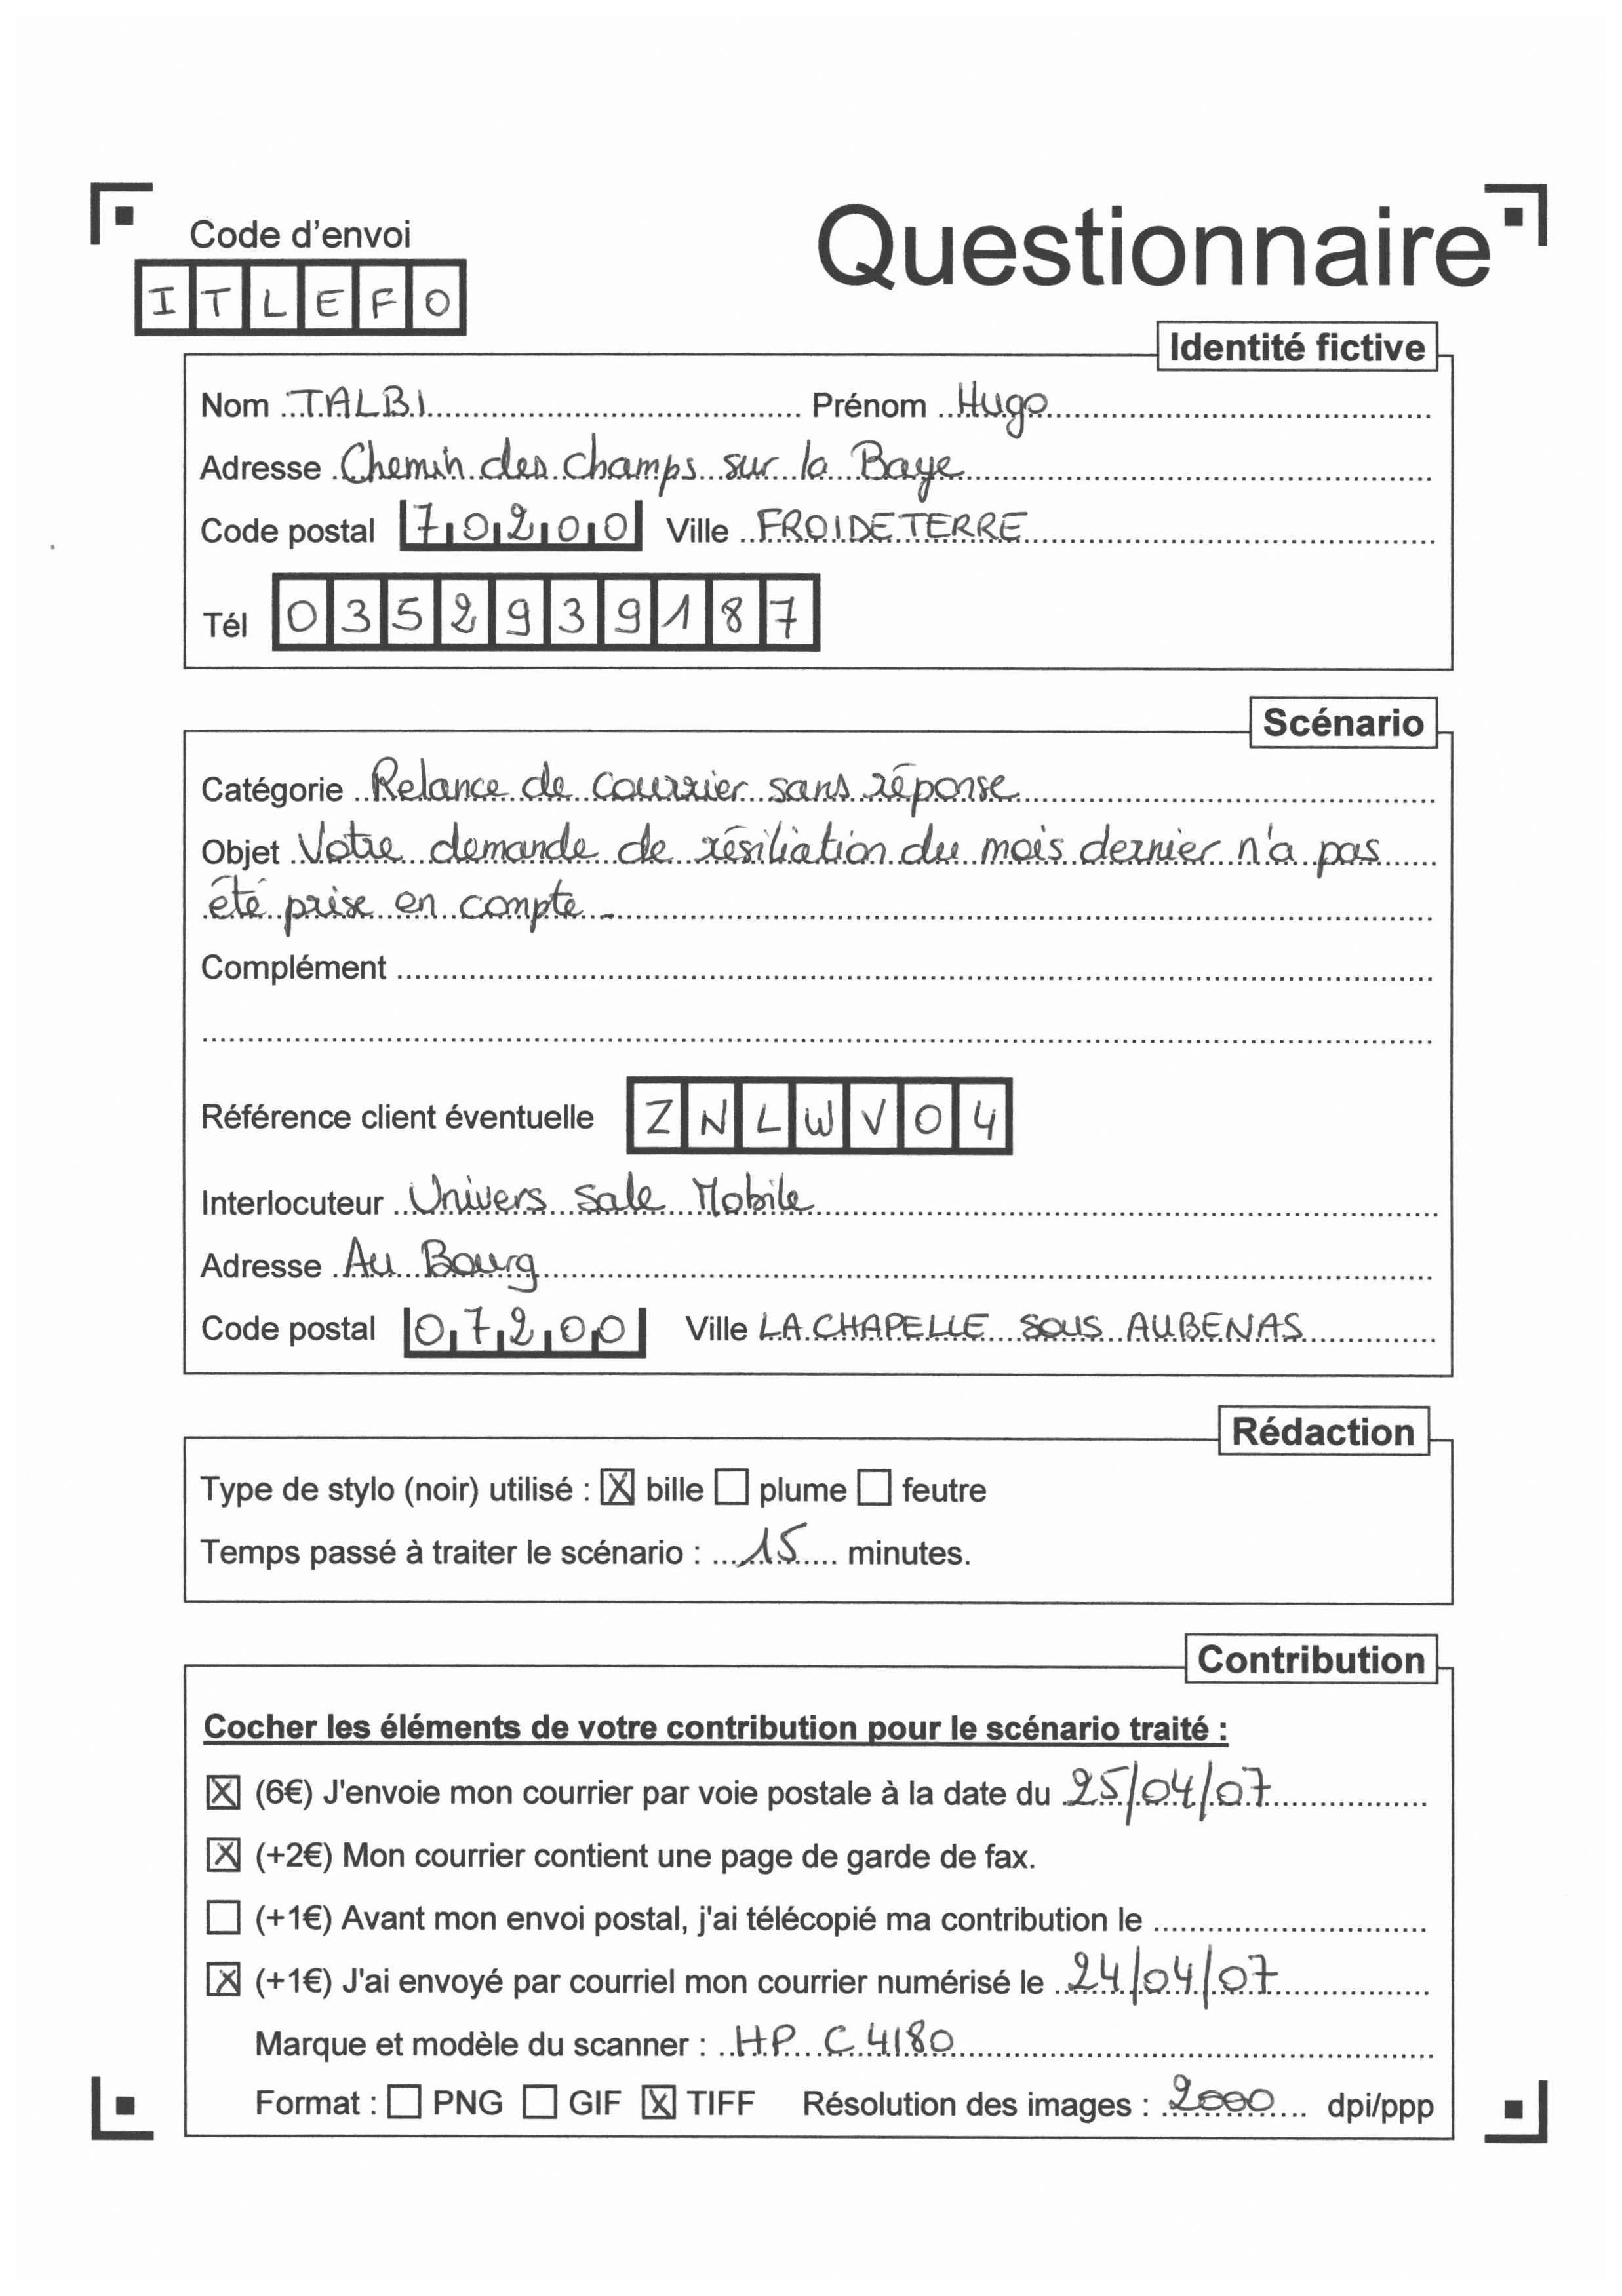 Code d'envoi
Questionnaire
ITLEFO
Identité fictive
Nom TALBI Prénom Hugo
Adresse Chemin des champs sur la Baye
Code postal 70200 Ville FROIDETERRE
Tél 0352939187
Scénario
Catégorie Relance de courrier sans réponse
Objet Votre demande de résiliation du mois dernier n'a pas
été prise en compte.
Complément
Référence client éventuelle ZNLWV04
Interlocuteur Univers Sale Mobile
Adresse Au Bourg
Code postal 07200 Ville LA CHAPELLE SOUS AUBENAS
Rédaction
Type de stylo (noir) utilisé : ☒ bille ☐ plume ☐ feutre
Temps passé à traiter le scénario : 15 minutes.
Contribution
Cocher les éléments de votre contribution pour le scénario traité :
☒ (6€) J'envoie mon courrier par voie postale à la date du 25/04/07
☒ (+2€) Mon courrier contient une page de garde de fax.
☐ (+1€) Avant mon envoi postal, j'ai télécopié ma contribution le
☒ (+1€) J'ai envoyé par courriel mon courrier numérisé le 24/04/07
Marque et modèle du scanner : HP C4180
Format : ☐ PNG ☐ GIF ☒ TIFF Résolution des images : 2000 dpi/ppp